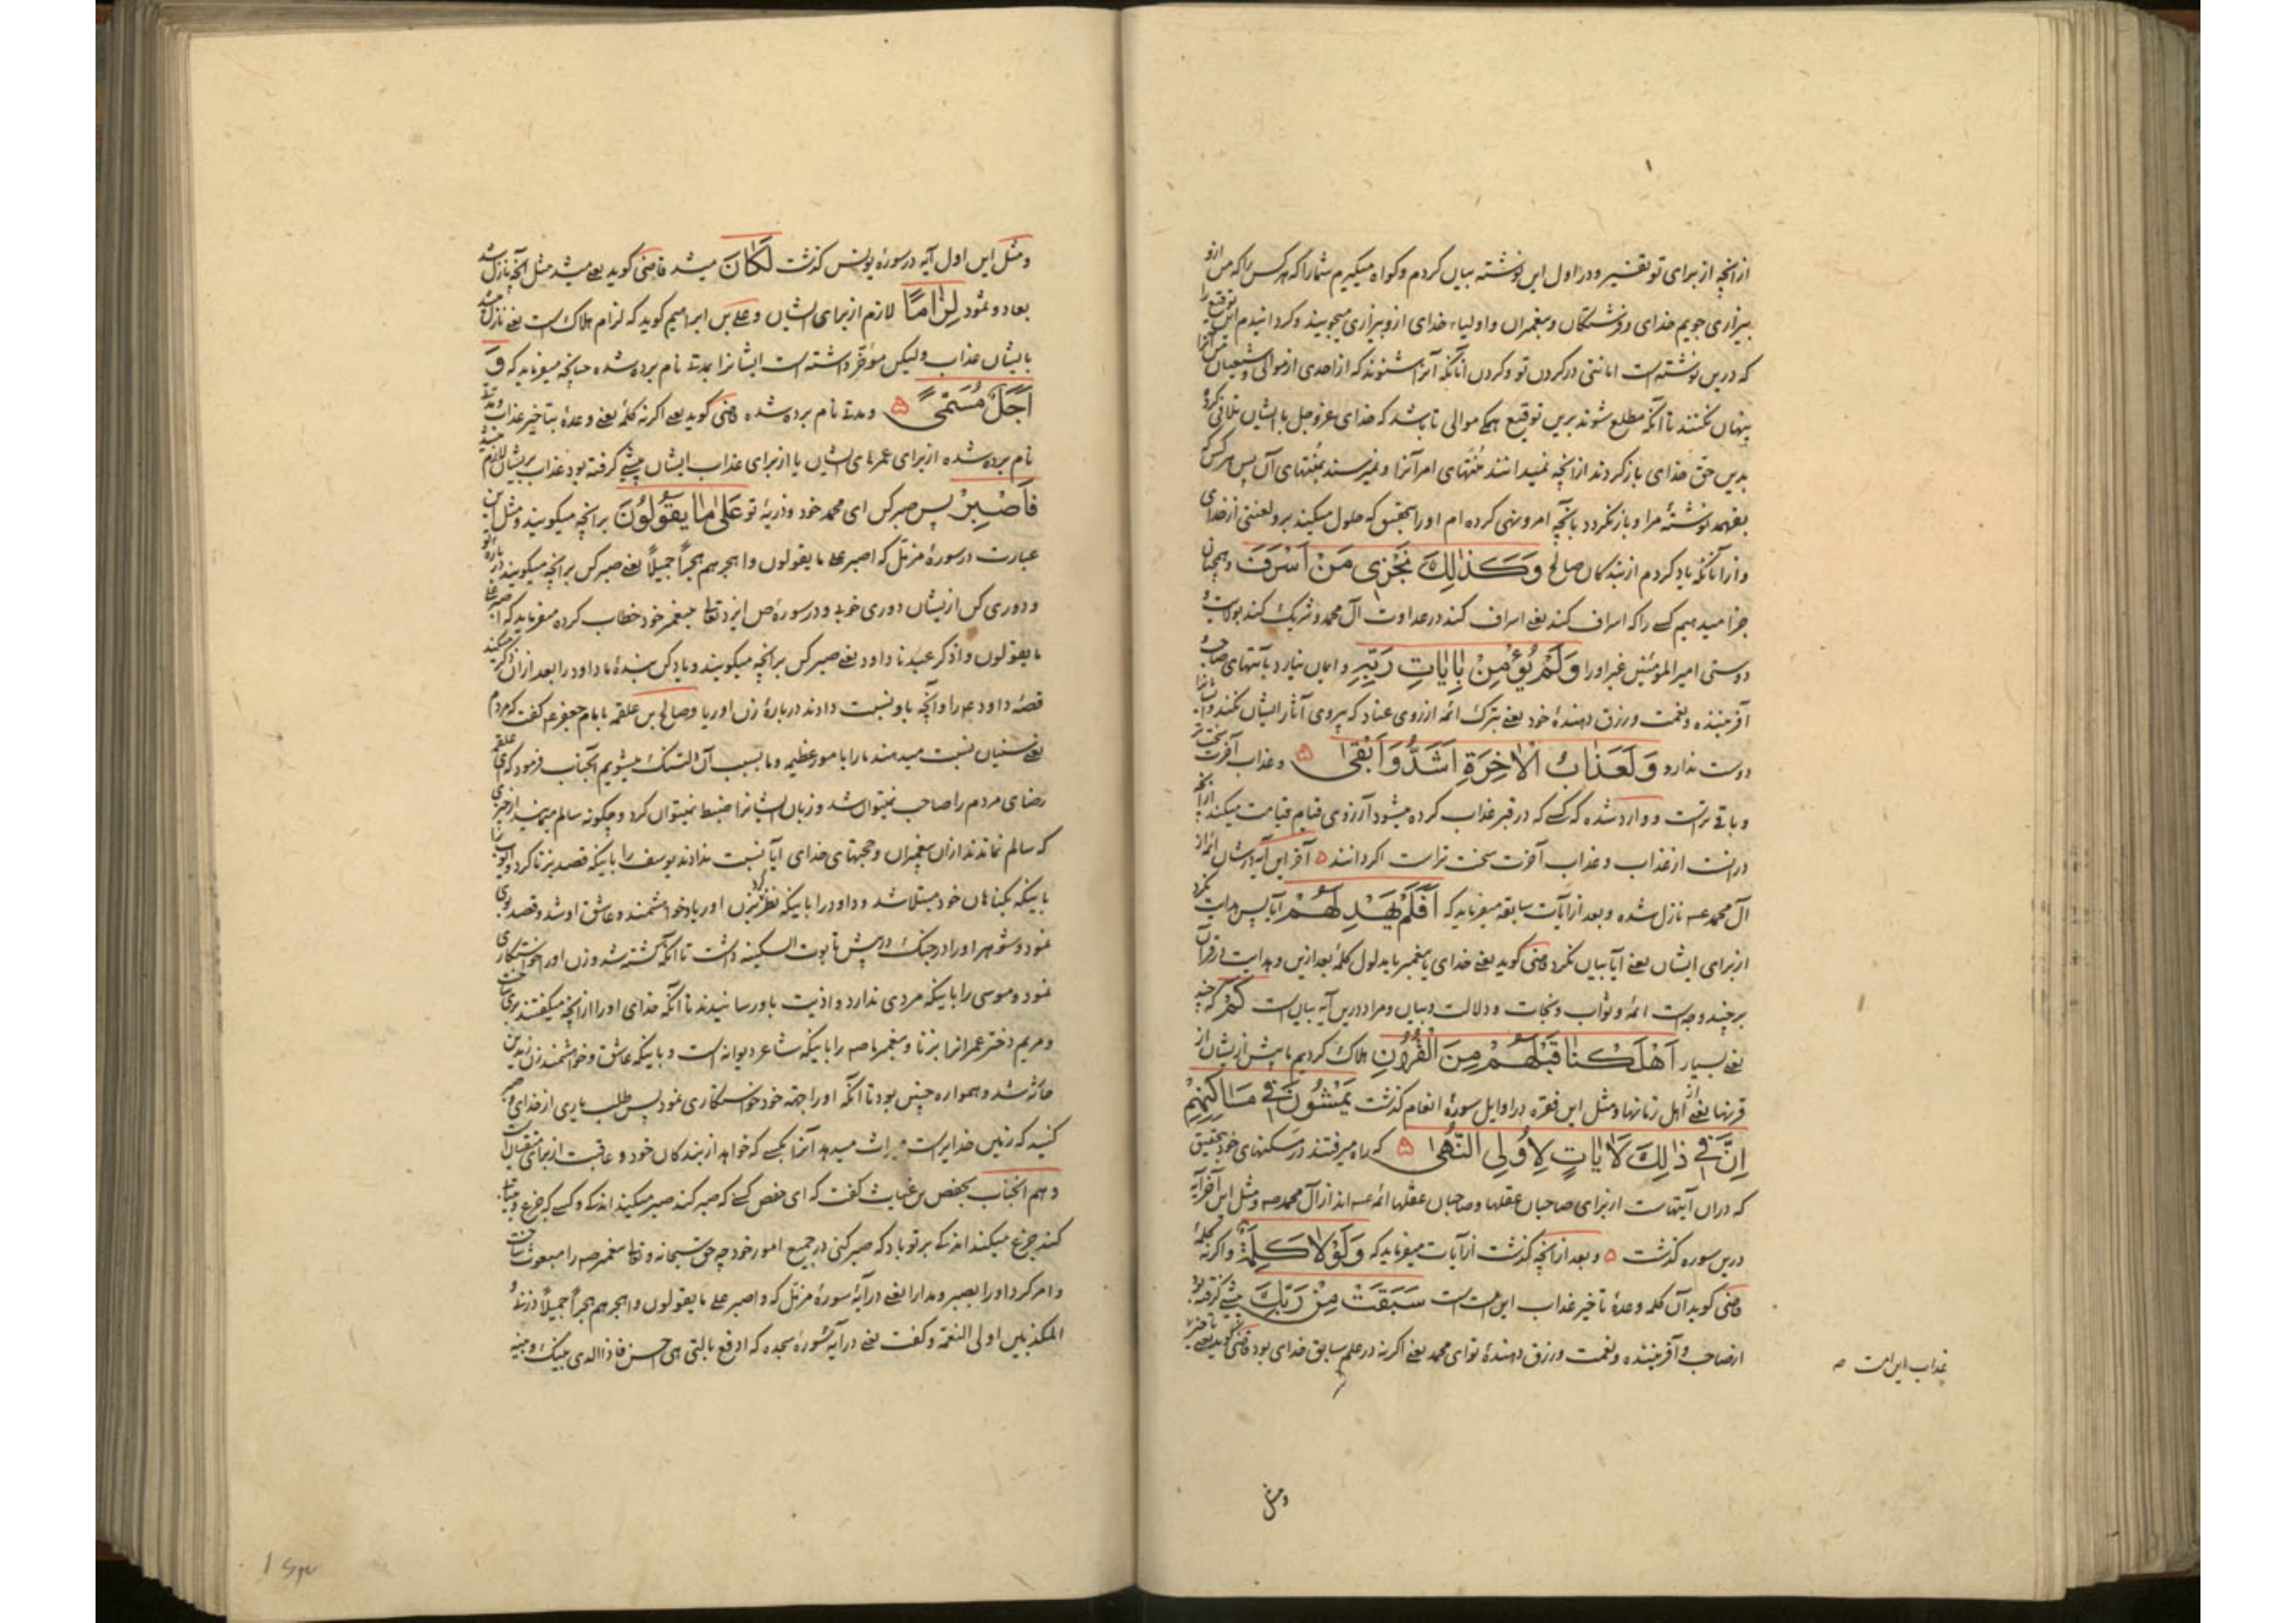 ازانچه از برای تو تفسیر و در اول این نوشته بیان کردم و کواه میکیرم شما را که هر کس را که من ازو
بیزاری جویم خدای و فرشتکان و پیغمبران و اولیاء خدای ازو بیزاری میجویند و کردانیدم این توقیع را
که درین نوشته است امانتی در کردن تو و کردن آنانکه آنرا شنوند که از احدی از موالی و شیعیان من آنرا
پنهان نکنند تا آنکه مطلع شوند برین توقیع همکی موالی تا باشد که خدای عز و جل بایشان تلافی کرده
بدین حق خدای باز کردند ازانچه نمیدانند منتهای امر آنرا و نمیرسند بمنتهای آن پس هر کس که
بفهمد نوشتهٔ مرا و باز نکردد بانچه امر و نهی کرده ام او را بتحقیق که حلول میکند برو لعنتی از خدای
و از آنانکه یاد کردم از بندکان صالح وَكَذٰلِكَ نَجْزِي مَنْ اَسْرَفَ و همچنان
جزا میدهیم کسی را که اسراف کند یعنی اسراف کند در عداوت آل محمد و شریک کند بولایت و
دوستی امیر المؤمنین غیر او را وَلَمْ يُؤْمِنْ بِاٰيَاتِ رَبِّهِ و ایمان نیارد بآیتهای صاحب و
آفریننده و نعمت و رزق دهندهٔ خود یعنی بترک ائمه از روی عناد که پیروی آثار ایشان نکند و ایشانرا
دوست ندارد وَلَعَذَابُ الْاٰخِرَةِ اَشَدُّ وَاَبْقٰى ۵ و عذاب آخرت سخت تر
و باقی تر است و وارد شده که کسی که در قبر عذاب کرده میشود آرزوی قیام قیامت میکند ازانچه
درانست از عذاب و عذاب آخرت سخت تر است اکر دانند ۵ آخر این آیه در شان ائمه از
آل محمد عـ نازل شده و بعد از آیات سابقه میفرماید که اَفَلَمْ يَهْدِ لَهُمْ آیا پس هدایت نکرد
از برای ایشان یعنی آیا بیان نکرد قاضی کوید یعنی خدای یا پیغمبر یا مدلول کلمهٔ بعد ازین و هدایت در قرآن
بر چند وجه است ائمه و ثواب و نجات و دلالت و بیان و مراد درین آیه بیان است كَمْ که چه
یعنی بسیار اَهْلَكْنَا قَبْلَهُمْ مِنَ الْقُرُوْنِ هلاک کردیم ما پیش از ایشان از
قرنها یعنی از اهل زمانها و مثل این فقره در اوایل سورهٔ انعام کذشت يَمْشُوْنَ فِي مَسَاكِنِهِمْ
اِنَّ فِي ذٰلِكَ لَاٰيَاتٍ لِاُولِي النُّهٰى ۵ که راه میرفتند در مسکنهای خود بتحقیق
که دران آیتهاست از برای صاحبان عقلها و صاحبان عقلها ائمه عـ اند از آل محمد صـ و مثل این آخر آیه
درین سوره کذشت ۵ و بعد ازانچه کذشت از آیات میفرماید که وَلَوْلَا كَلِمَةٌ و اکر نه کلمهٔ
قاضی کوید آن کلمه وعدهٔ تاخیر عذاب این امت است سَبَقَتْ مِنْ رَبِّكَ پیشی کرفته بود
از صاحب و آفریننده و نعمت و رزق دهندهٔ تو ای محمد یعنی اکر نه در علم سابق خدای بود قاضی کوید یعنی تاخیر
عذاب این امت صـ
و مثل
و مثل این اول آیه در سورهٔ یونس کذشت لَكَانَ میشد قاضی کوید یعنی میشد مثل آنچه نازل شد
بعاد و ثمود لِزَامًا لازم از برای ایشان و علی بن ابراهیم کوید که لزام هلاک است یعنی نازل میشد
بایشان عذاب ولیکن مؤخّر داشته است ایشانرا بمدت نام برده شده چنانچه میفرماید که وَ
اَجَلٌ مُسَمًّى ۵ و مدت نام برده شده قاضی کوید یعنی اکر نه کلمهٔ یعنی وعدهٔ بتاخیر عذاب و مدت
نام برده شده از برای عمرهای ایشان یا از برای عذاب ایشان پیشی کرفته بود عذاب بریشان لازم میشد
فَاصْبِرْ پس صبر کن ای محمد خود و ذریهٔ تو عَلٰى مَا يَقُوْلُوْنَ برانچه میکویند و مثل این
عبارت در سورهٔ مزمّل که اصبر علی ما یقولون و اهجرهم هجراً جمیلاً یعنی صبر کن برانچه میکویند در بارهٔ تو
و دوری کن ازیشان دوری خوب و در سورهٔ ص ایزد تعالی پیغمبر خود خطاب کرده میفرماید که اصبر علی
ما یقولون و اذکر عبدنا داود یعنی صبر کن برانچه میکویند و یاد کن بندهٔ ما داود را بعد ازان ذکر میکند
قصهٔ داود عـ را و آنچه باو نسبت دادند در بارهٔ زن اوریا و صالح بن علقمه بامام جعفر عـ کفت که مردم
یعنی سنیان نسبت میدهند ما را بامور عظیم و ما بسبب آن دلتنک میشویم آنجناب فرمود که ای علقمه
رضای مردم را صاحب نمیتوان شد و زبان ایشانرا ضبط نمیتوان کرد و چکونه سالم میمانید از چیزی
که سالم نماندند ازان پیغمبران و حجتهای خدای آیا نسبت ندادند یوسف را باینکه قصد زنا کرد و ایوب را
باینکه بکناهان خود مبتلا شد و داود را باینکه نظر کرد بزن اوریا و خواهشمند و عاشق او شد و قصد بوی
نمود و شوهر او را در جنک در پیش تابوت السکینه داشت تا آنکه کشته شد و زن او را خواستکاری
نمود و موسی را باینکه مردی ندارد و اذیت باو رسانیدند تا آنکه خدای او را ازانچه میکفتند بری ساخت
و مریم دختر عمرانرا بزنا و پیغمبر ما صـ را باینکه شاعر دیوانه است و باینکه عاشق و خواهشمند زن زید بن
حارثه شد و همواره چنین بود تا آنکه او را بجهة خود خواستکاری نمود پس طلب یاری از خدای و صبر
کنید که زمین خدایراست میراث میدهد آنرا بکسی که خواهد از بندکان خود و عاقبت از برای متقیان است
و هم آنجناب بحفص بن غیاث کفت که ای حفص کسی که صبر کند صبر میکند اندکی و کسی که جزع و بیتابی
کند جزع میکند اندکی بر تو باد که صبر کنی در جمیع امور خود چه حق سبحانه و تعالی پیغمبر صـ را مبعوث ساخت
و امر کرد او را بصبر و مدارا یعنی در آیهٔ سورهٔ مزمّل که و اصبر علی ما یقولون و اهجرهم هجراً جمیلاً و ذرنی و
المکذبین اولی النعمة و کفت یعنی در آیهٔ سورهٔ سجده که ادفع بالتی هی احسن فاذا الذی بینک و بینه